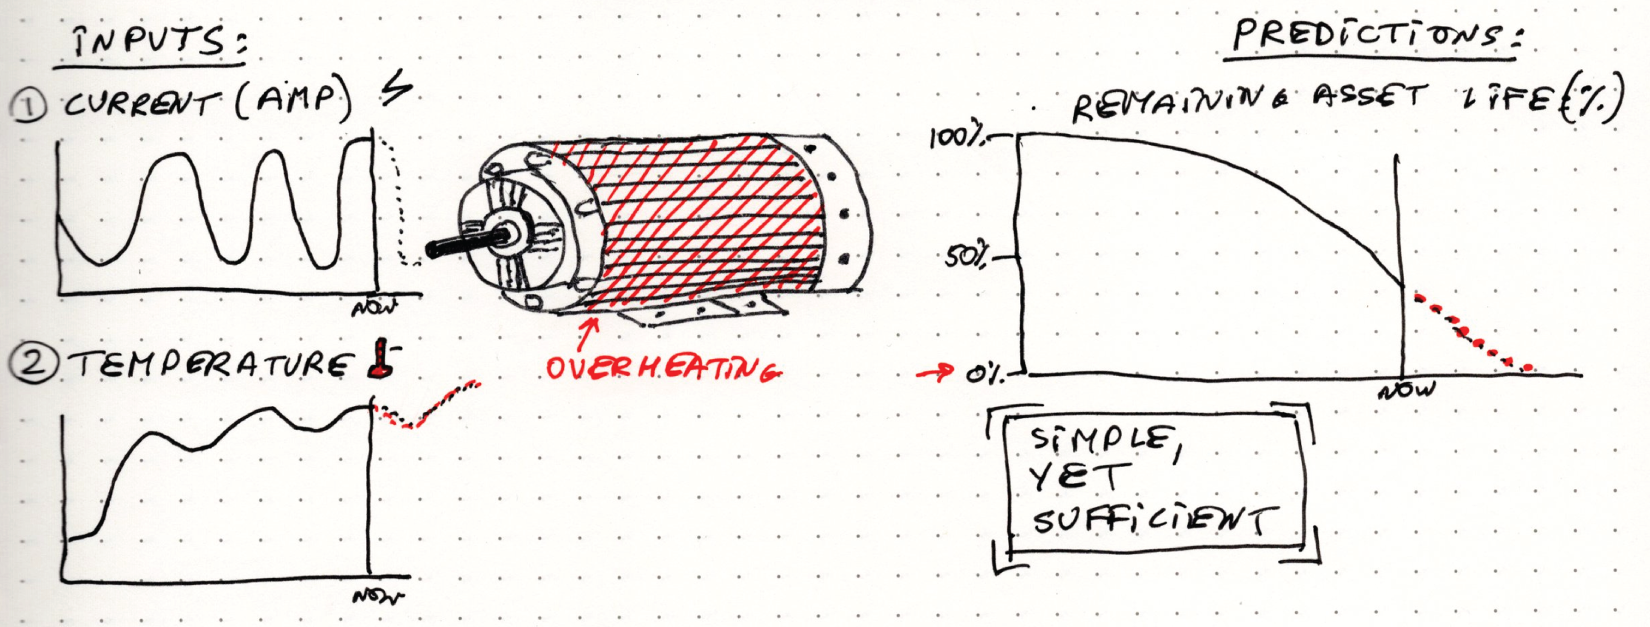 INPUTS:
1 CURRENT (AMP)
NOW
2 TEMPERATURE
NOW
OVERHEATING
PREDICTIONS:
REMAINING ASSET LIFE (%)
100%
50%
0%
NOW
SIMPLE,
YET
SUFFICIENT